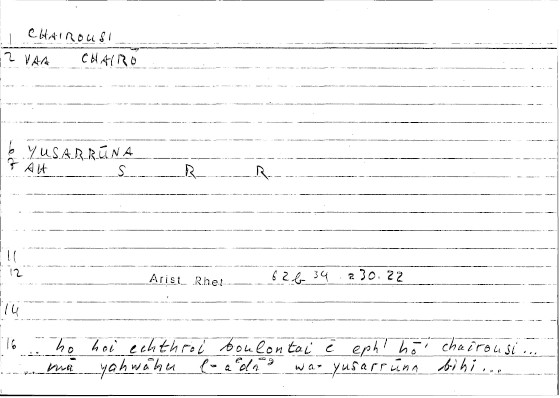 1 CHAIROUSI
2 VAA CHAIRŌ
6 YUSARRŪNA
7 AH S R R
11
12 Arist Rhet 62b 34 = 30.22
14
16 .. ho hoi echthroi boulontai ē eph' hō' chairousi ...
... mā yahwāhu l-aʿdāʾ wa-yusarrūna bihi ...